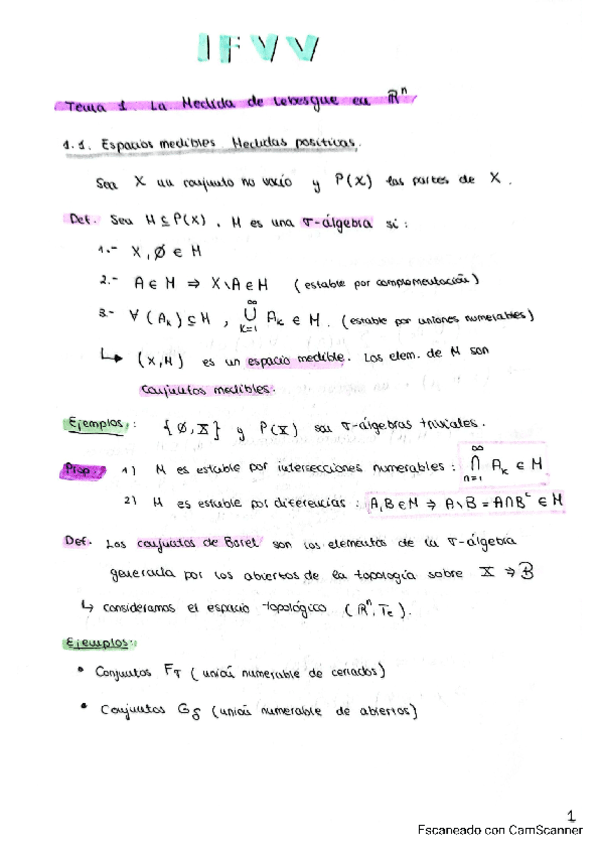 IFVV
Tema 1. La Medida de Lebesgue en ℝⁿ
1.1. Espacios medibles. Medidas positivas.
Sea X un conjunto no vacío y P(X) las partes de X.
Def. Sea M ⊆ P(X), M es una σ-álgebra si:
1.- X, ∅ ∈ M
2.- A ∈ M ⇒ X\A ∈ M (estable por complementación)
3.- ∀ (Aₖ) ⊆ M, ⋃_{k=1}^{∞} Aₖ ∈ M. (estable por uniones numerables)
↳ (X, M) es un espacio medible. Los elem. de M son
conjuntos medibles.
Ejemplos: {∅, X} y P(X) son σ-álgebras triviales.
Prop. 1) M es estable por intersecciones numerables: ⋂_{n=1}^{∞} Aₖ ∈ M
2) M es estable por diferencias: A, B ∈ M ⇒ A\B = A∩Bᶜ ∈ M
Def. Los conjuntos de Borel son los elementos de la σ-álgebra
generada por los abiertos de la topología sobre X ⇒ B
↳ consideramos el espacio topológico (ℝⁿ, Tₑ).
Ejemplos:
• Conjuntos Fσ (unión numerable de cerrados)
• Conjuntos Gδ (unión numerable de abiertos)
1
Escaneado con CamScanner